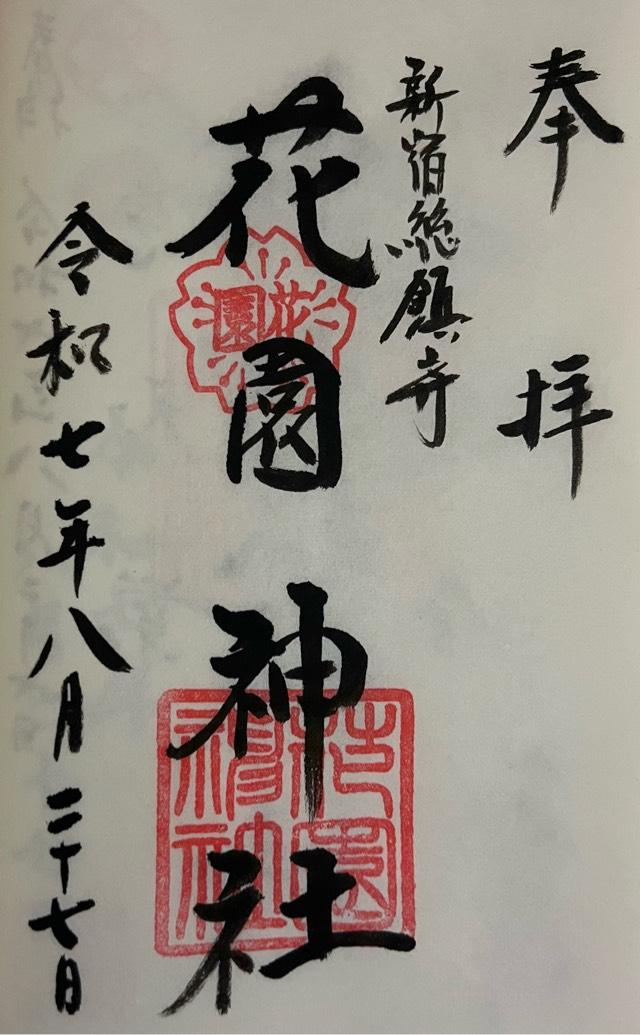 奉拝
新宿総鎮守
花園神社
花園
花園神社
令和七年八月二十七日